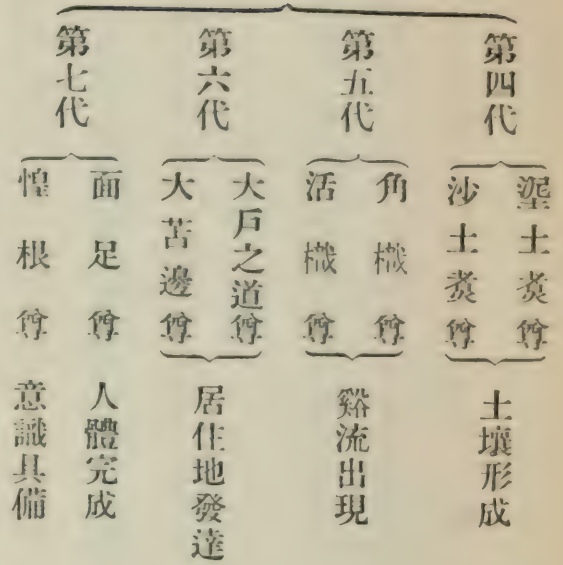 第四代
埿土煑尊
沙土煑尊
土壤形成
第五代
角樴尊
活樴尊
谿流出現
第六代
大戶之道尊
大苫邊尊
居住地發達
第七代
面足尊
人體完成
惶根尊
意識具備